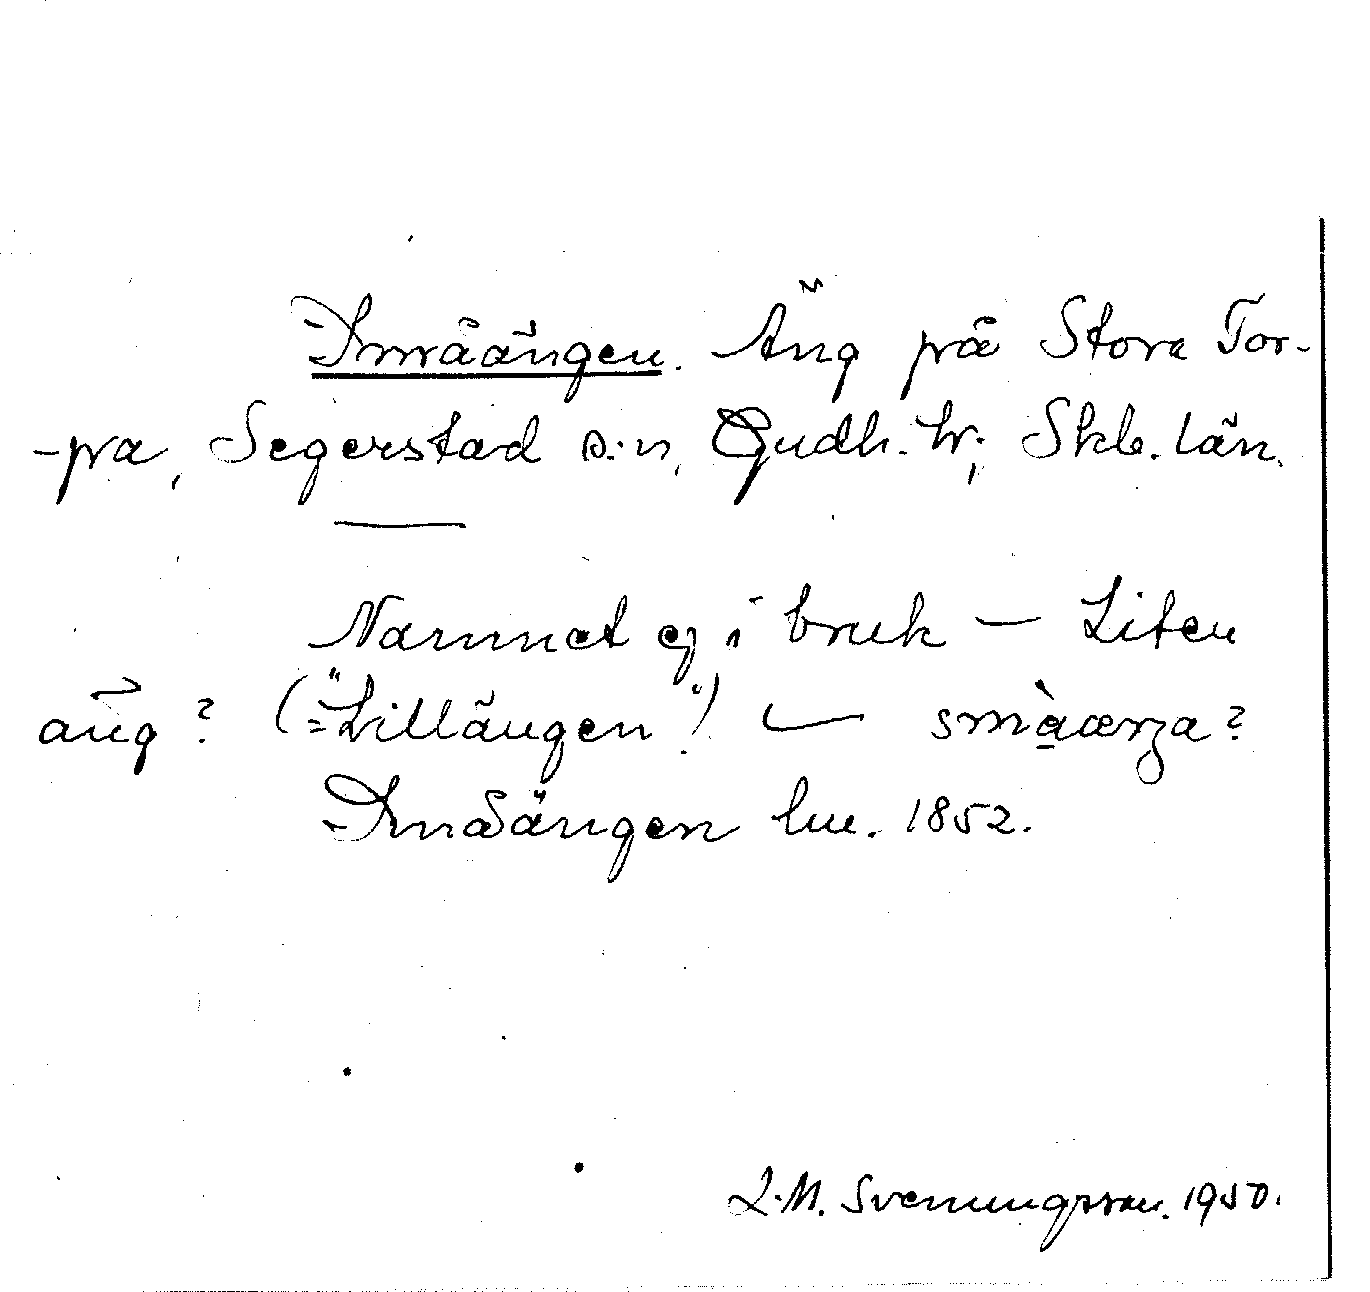 Smråängen. Äng på Stora Tor-
-pa, Segerstad s:n, Gudh. hr; Skb. län.
Namnet ej i bruk — Liten
äng? (="Lillängen".) — småærga?
Smååängen lm. 1852.
L.M. Svenungsson. 1950.